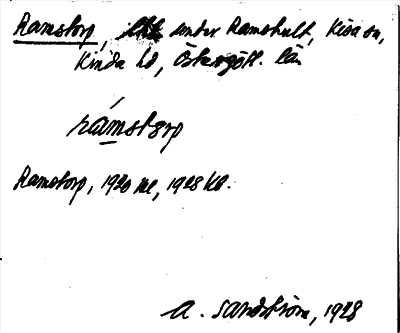 Ramstorp, under Ramshult, Kisa sn,
Kinda hd, Östergötl. län
rámstǫrp
Ramstorp, 1920 me, 1928 kl.
A. Sandström, 1928